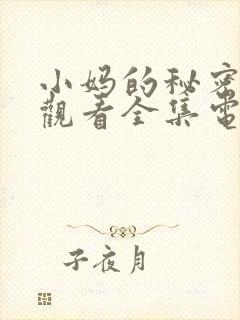 小妈的秘密
觀看全集電
子夜月